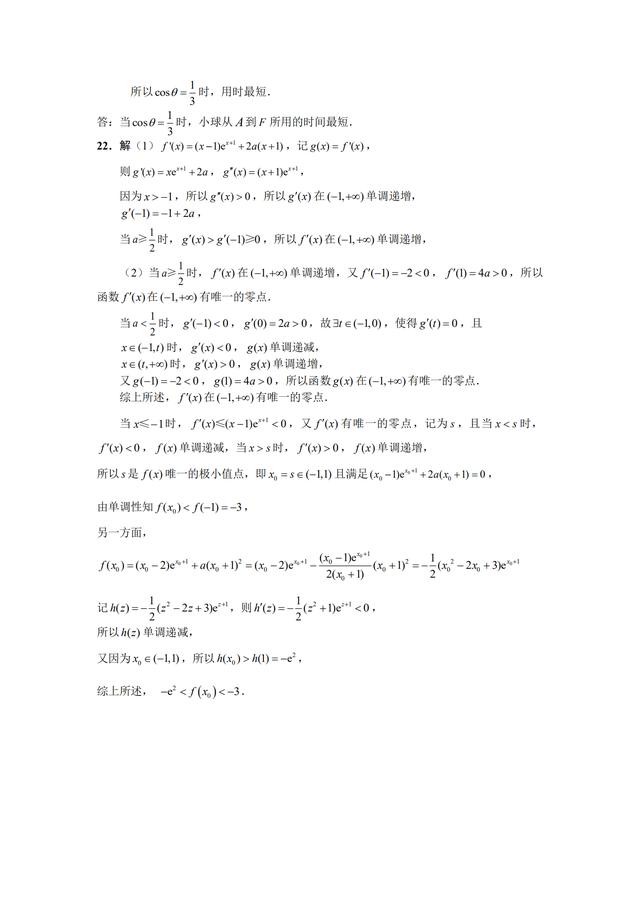 所以cosθ = 1/3 时，用时最短．
答：当cosθ = 1/3 时，小球从 A 到 F 所用的时间最短．
22．解（1） f '(x) = (x−1)e^{x+1} + 2a(x+1)，记 g(x) = f '(x)，
则 g'(x) = xe^{x+1} + 2a，g″(x) = (x+1)e^{x+1}，
因为 x > −1，所以 g″(x) > 0，所以 g′(x) 在 (−1,+∞) 单调递增，
g′(−1) = −1 + 2a，
当 a≥1/2 时，g′(x) > g′(−1)≥0，所以 f ′(x) 在 (−1,+∞) 单调递增，
（2）当 a≥1/2 时，f ′(x) 在 (−1,+∞) 单调递增，又 f ′(−1) = −2 < 0，f ′(1) = 4a > 0，所以
函数 f ′(x) 在 (−1,+∞) 有唯一的零点．
当 a < 1/2 时，g′(−1) < 0，g′(0) = 2a > 0，故 ∃t∈(−1,0)，使得 g′(t) = 0，且
x∈(−1,t) 时，g′(x) < 0，g(x) 单调递减，
x∈(t,+∞) 时，g′(x) > 0，g(x) 单调递增，
又 g(−1) = −2 < 0，g(1) = 4a > 0，所以函数 g(x) 在 (−1,+∞) 有唯一的零点．
综上所述，f ′(x) 在 (−1,+∞) 有唯一的零点．
当 x≤−1 时，f ′(x)≤(x−1)e^{x+1} < 0，又 f ′(x) 有唯一的零点，记为 s，且当 x < s 时，
f ′(x) < 0，f (x) 单调递减，当 x > s 时，f ′(x) > 0，f (x) 单调递增，
所以 s 是 f (x) 唯一的极小值点，即 x₀ = s∈(−1,1) 且满足 (x₀−1)e^{x₀+1} + 2a(x₀+1) = 0，
由单调性知 f (x₀) < f (−1) = −3，
另一方面，
f (x₀) = (x₀−2)e^{x₀+1} + a(x₀+1)² = (x₀−2)e^{x₀+1} − (x₀−1)e^{x₀+1}/2(x₀+1) (x₀+1)² = −1/2(x₀²−2x₀+3)e^{x₀+1}
记 h(z) = −1/2(z²−2z+3)e^{z+1}，则 h′(z) = −1/2(z²+1)e^{z+1} < 0，
所以 h(z) 单调递减，
又因为 x₀∈(−1,1)，所以 h(x₀) > h(1) = −e²，
综上所述， −e² < f (x₀) < −3．